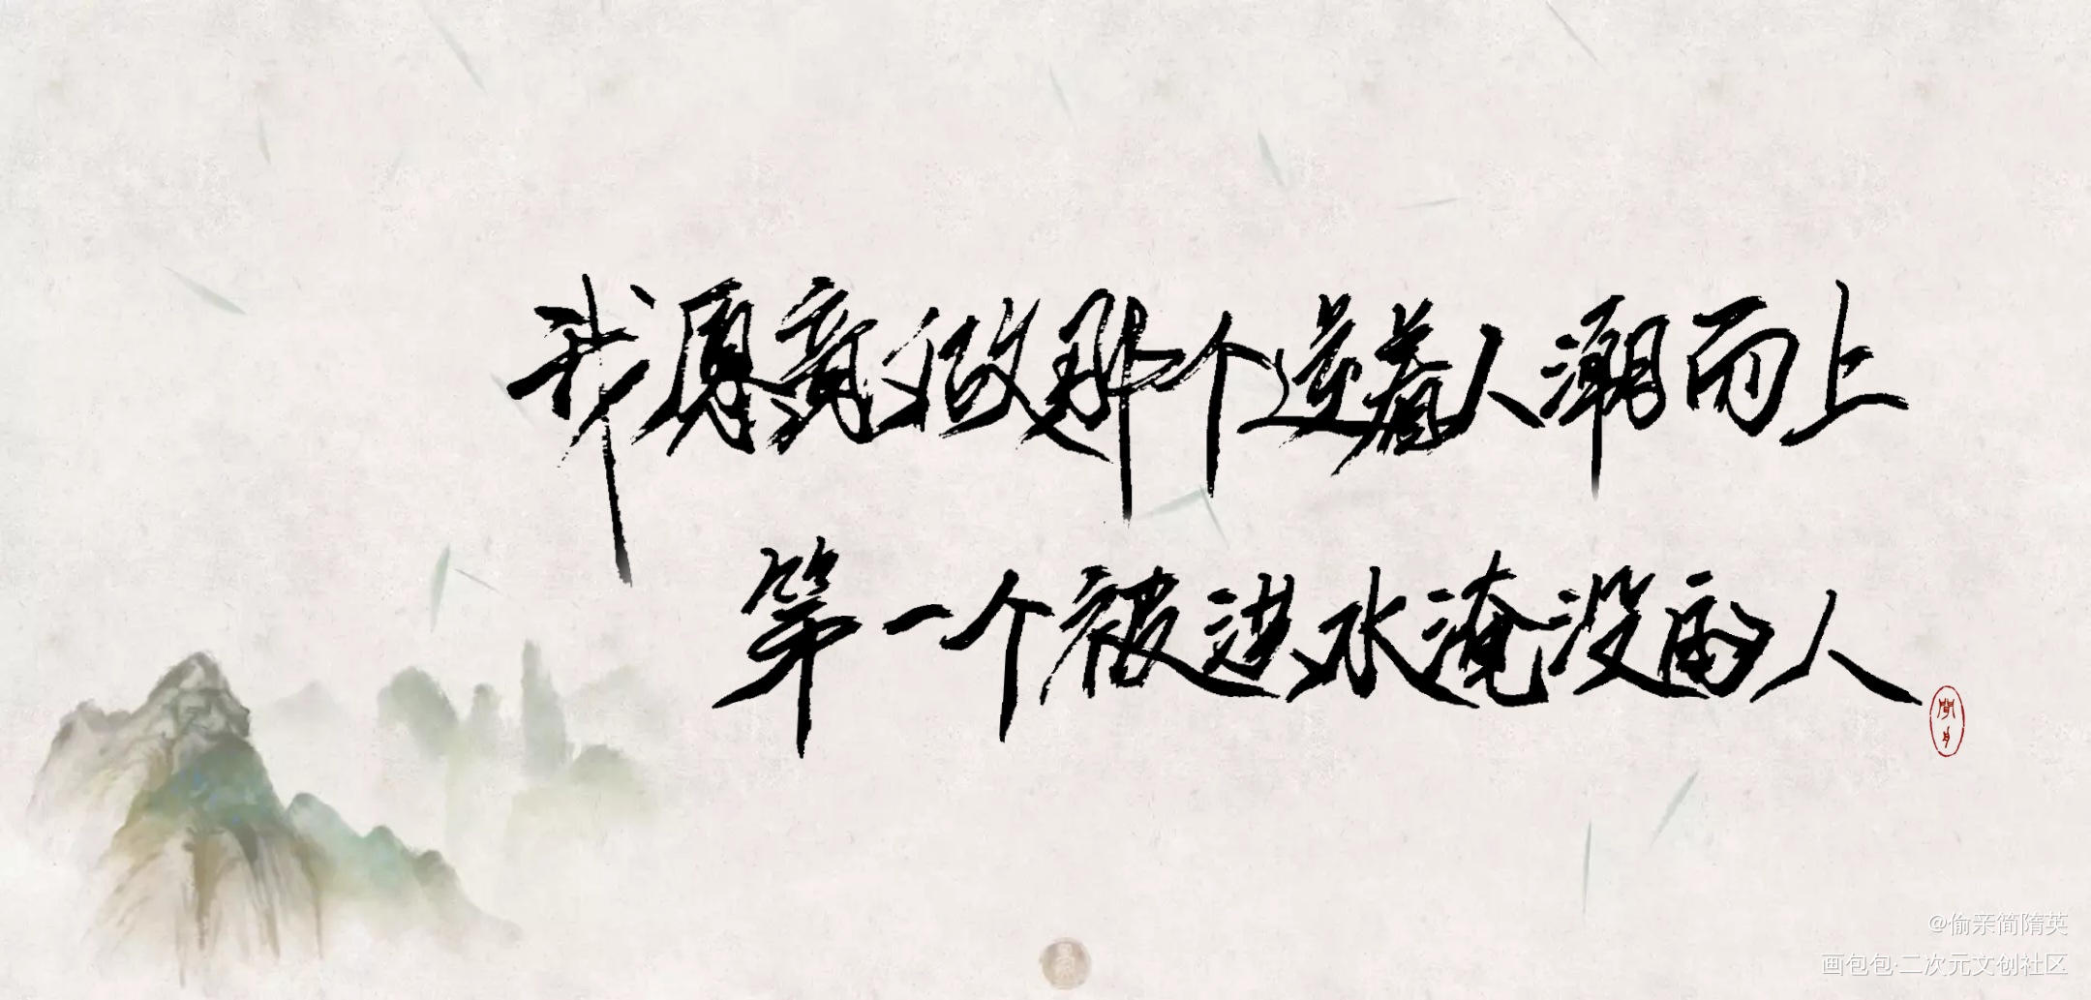 我愿意做那个逆着人潮而上
第一个被洪水淹没的人
@偷亲简隋英
画包包·二次元文创社区